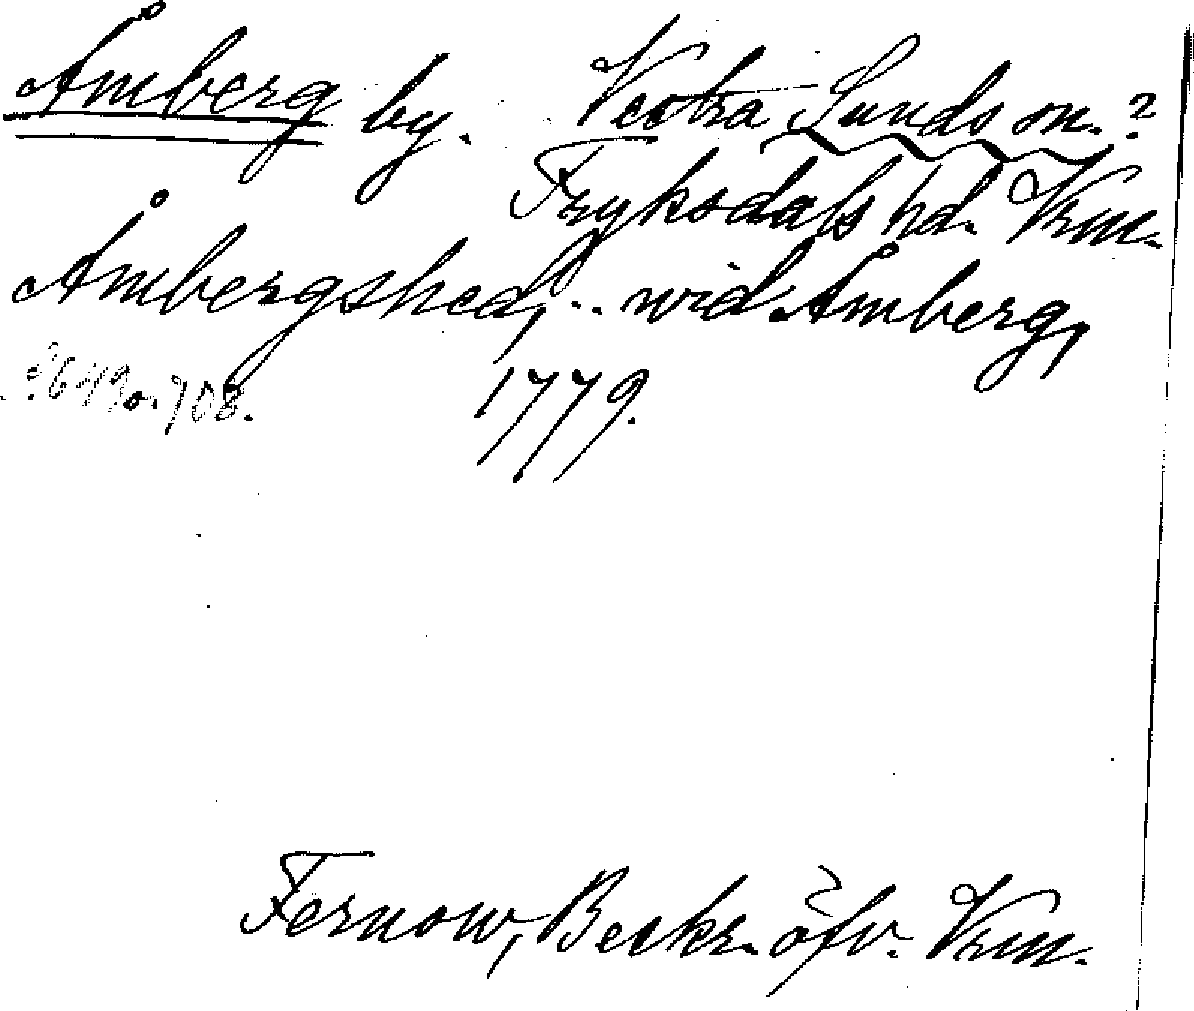 Åmberg by. Vestra Sunds sn.?
Fryksdals hd. Vrm.
Åmbergshed, .. wid Åmberg,
s. 649 o. 708. 1779.
Fernow, Beskr. öfv. Vrm.